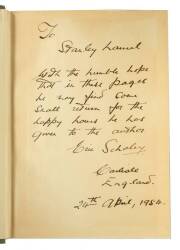 To
Stanley Laurel
With the humble hope
that in these pages
he may find some
small return for the
happy hours he has
given to the author
Eric Scholey
Carlisle
England.
24th April, 1954.